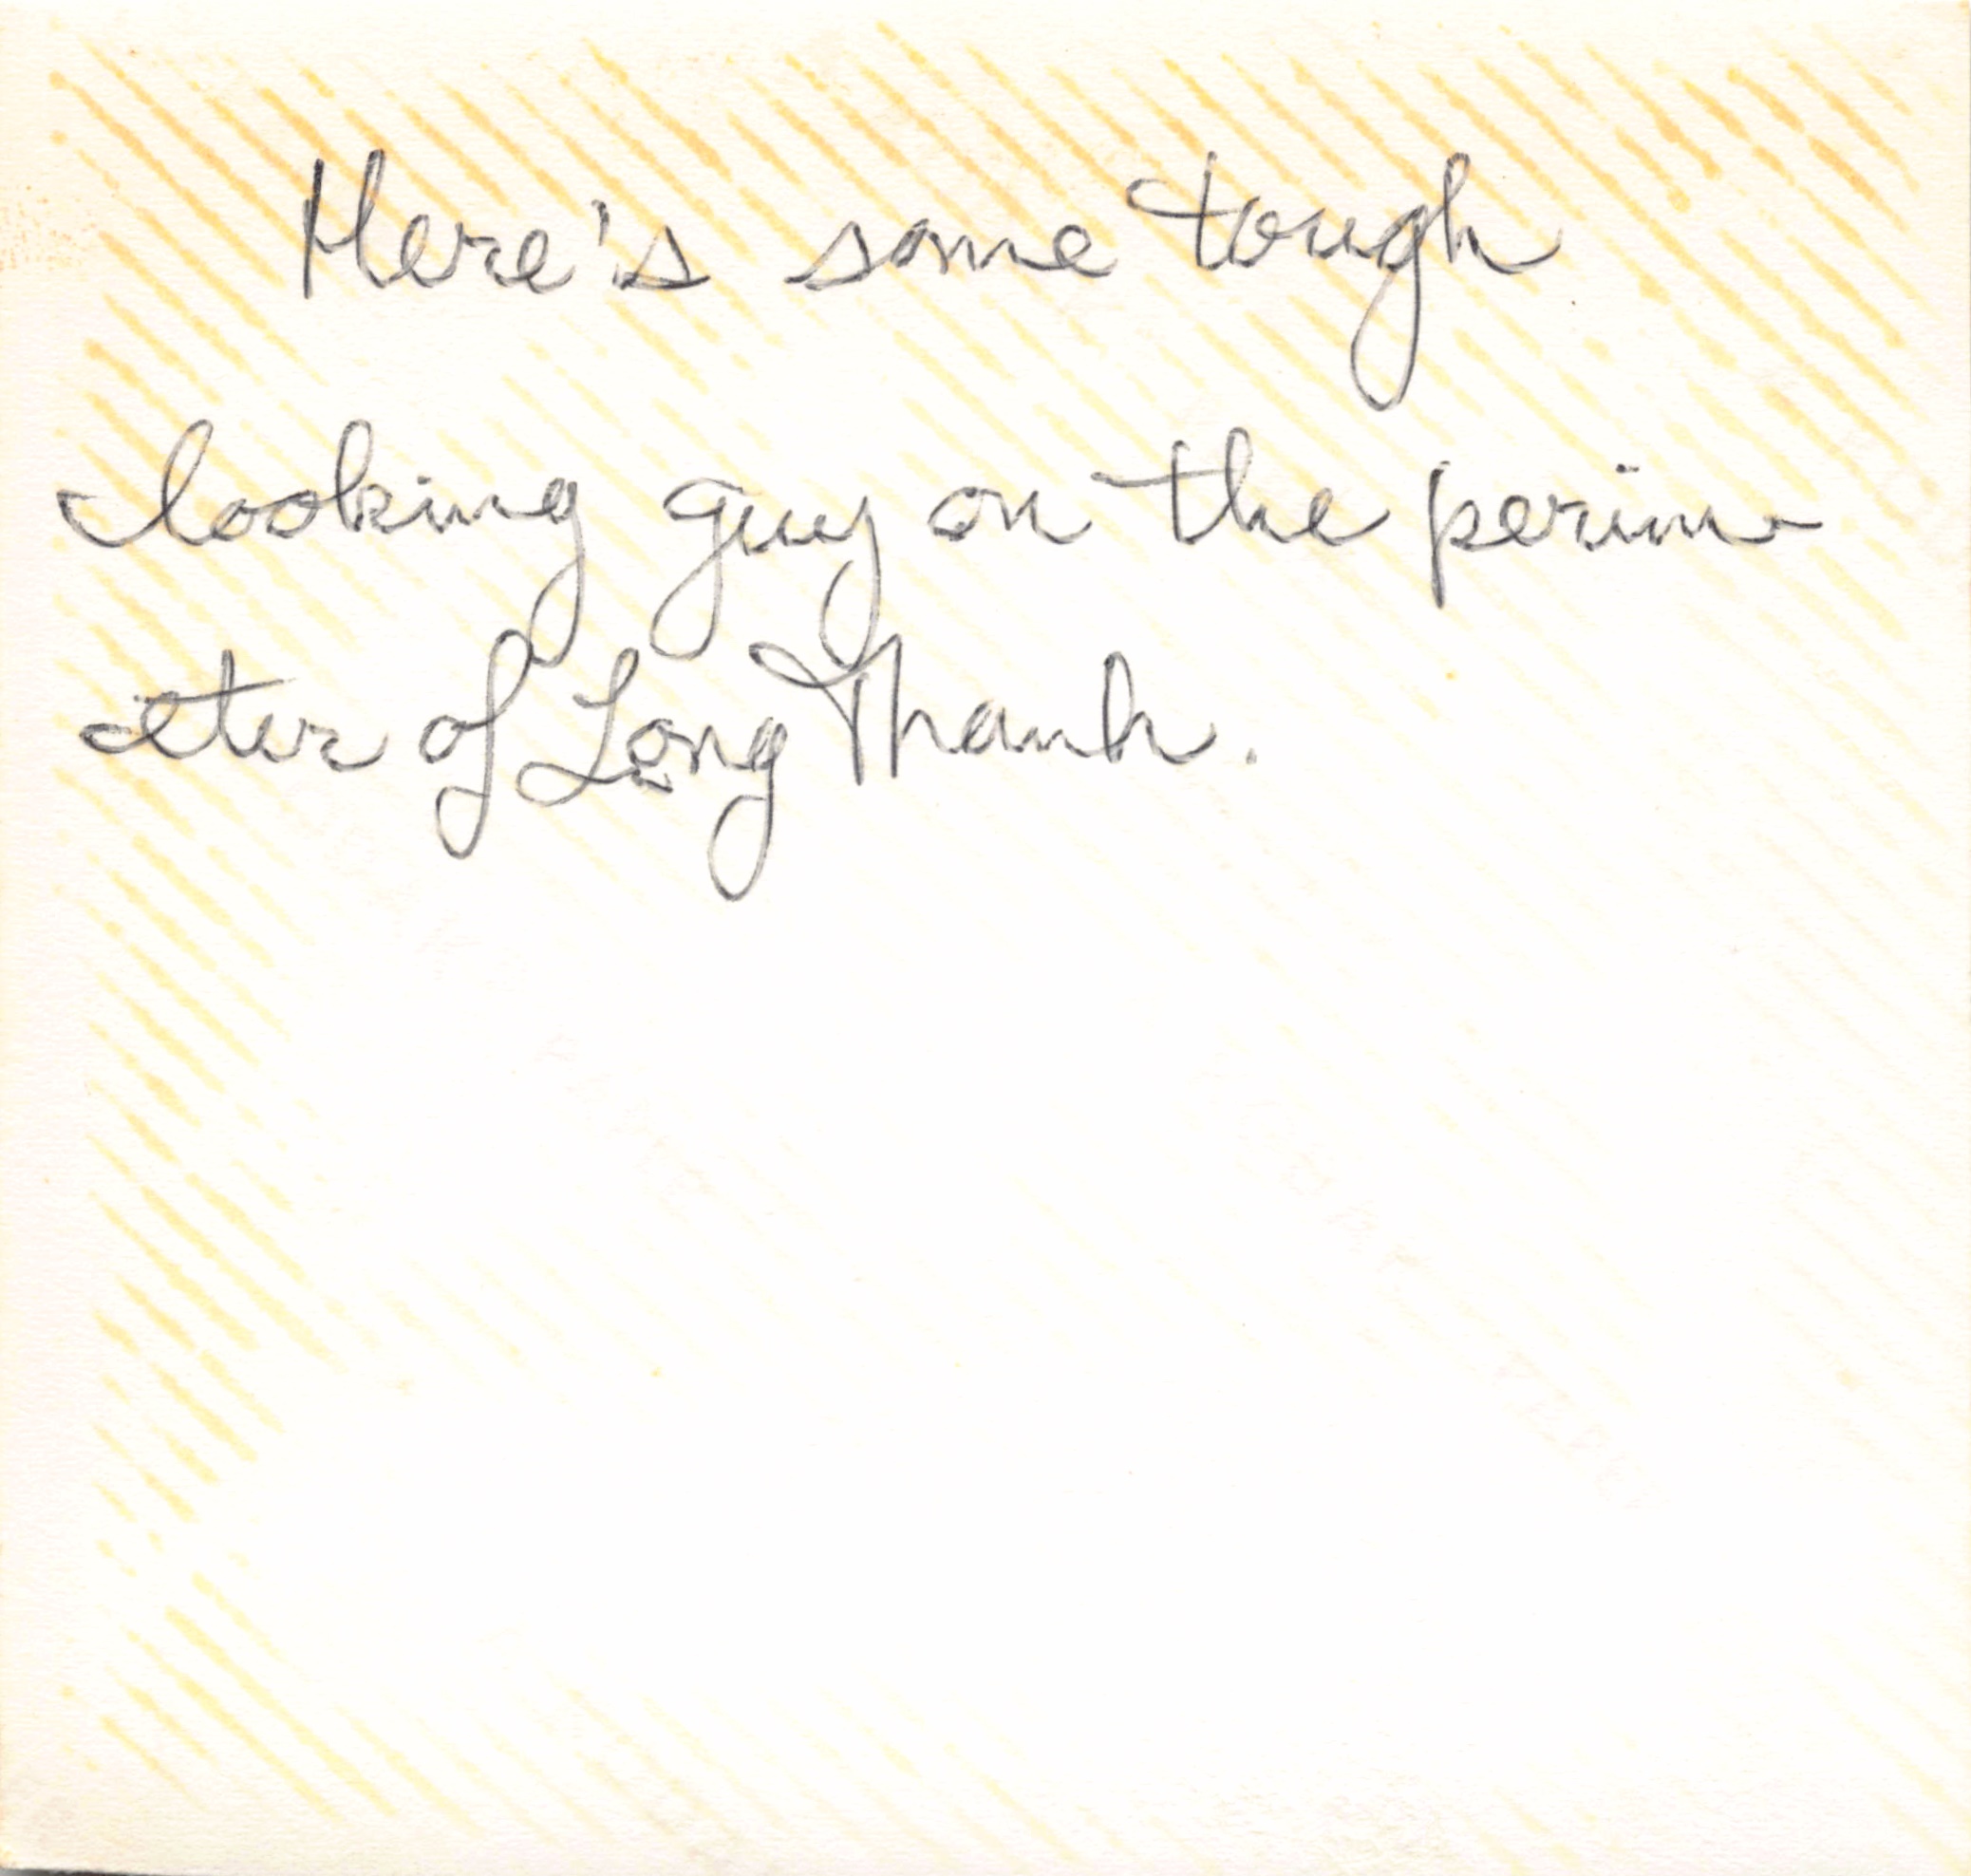 Here's some tough
looking guy on the perim-
eter of Long Thanh.